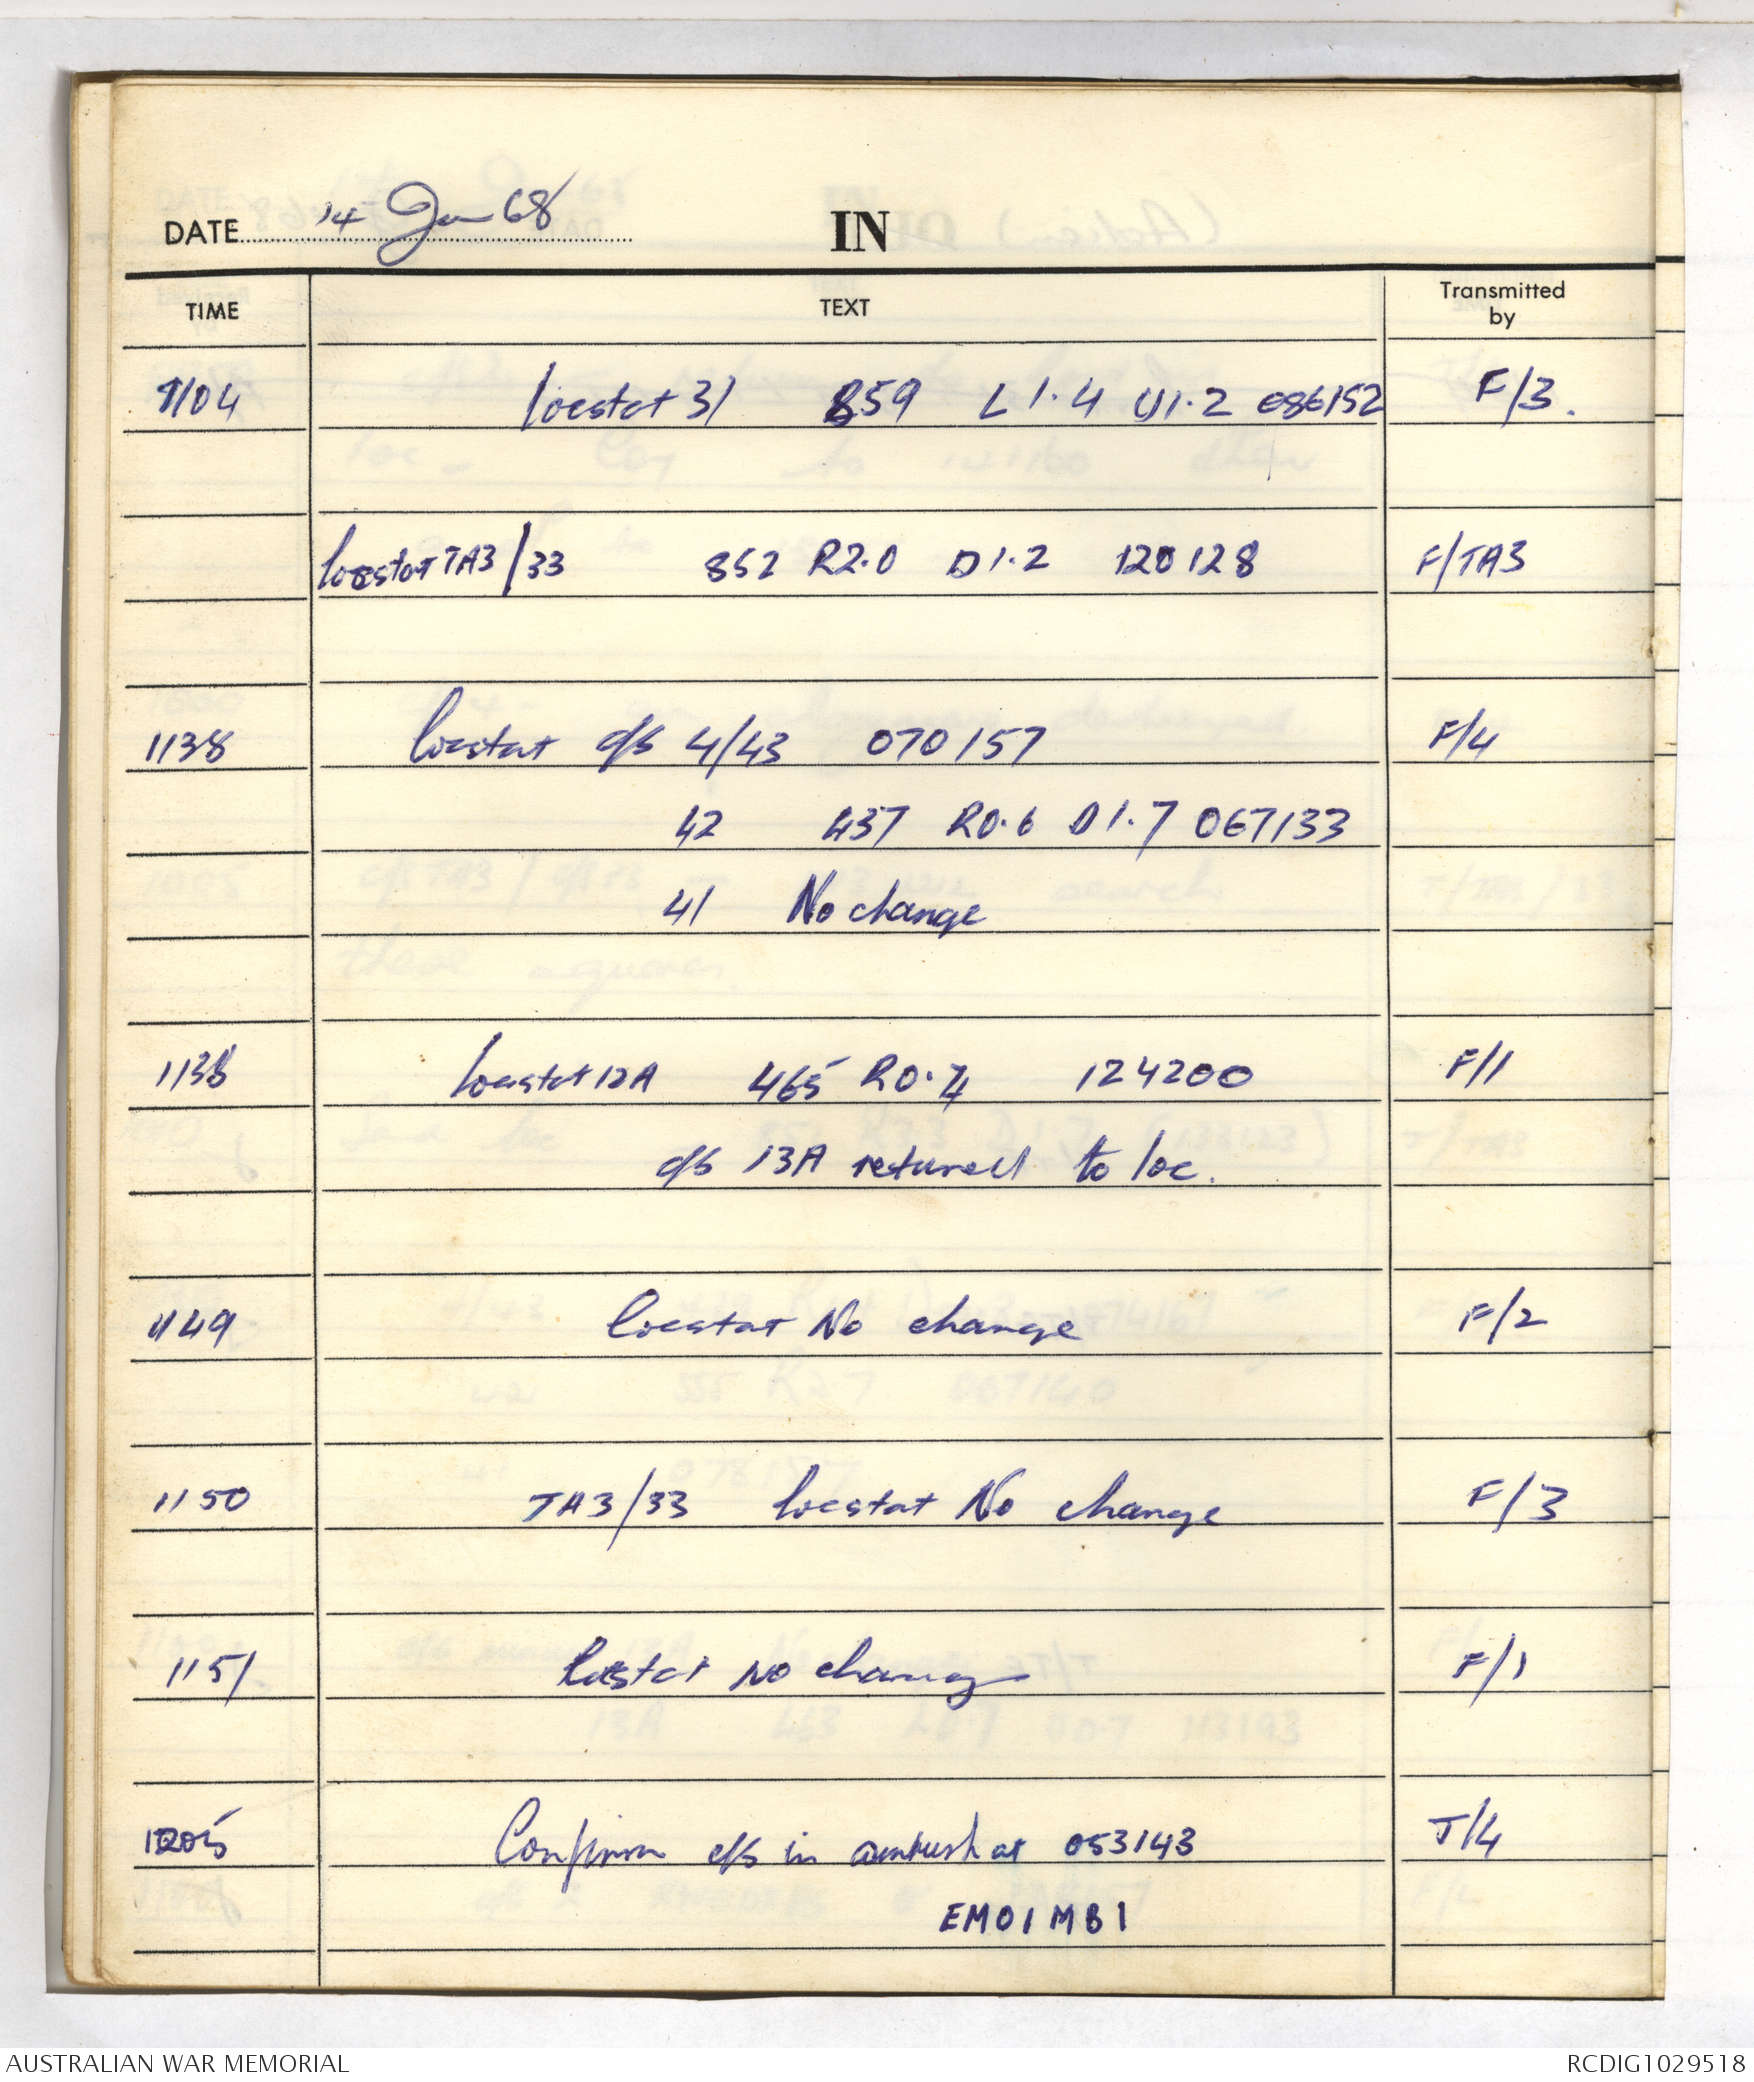 DATE 14 Jan 68
IN
TIME TEXT Transmitted by
1104 locstat 31 859 L 1.4 U1.2 086152 F/3.
locstat TA3/33 852 R2.0 D1.2 120128 F/TA3
1138 locstat c/s 4/43 070157 F/4
42 437 R0.6 D1.7 067133
41 No change
1138 locstat 12A 465 R0.4 124200 F/1
c/s 13A returned to loc.
1149 locstat No change F/2
1150 TA3/33 locstat No change F/3
1151 locstat No change F/1
1205 Confirm c/s in ambush at 053143 J/4
EM01MB1
AUSTRALIAN WAR MEMORIAL
RCDIG1029518